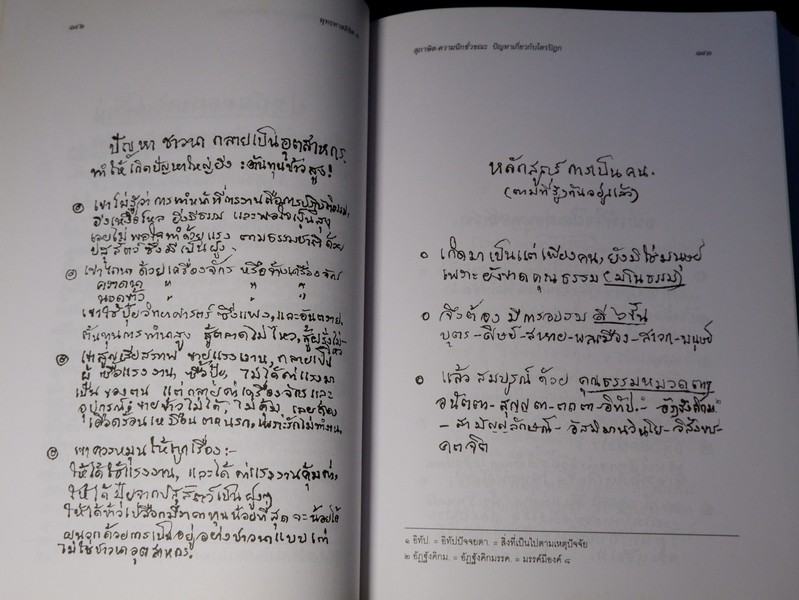 ๑๔๒
พุทธทาสลิขิต ๓
ปัญหา ชาวนา กลายเป็นอุตสาหกร.
ทำให้เกิดปัญหาใหญ่ยิ่ง : ต้นทุนข้าวสูง!
๑ เขาไม่รู้ว่า การทำหน้าที่การงานคือการปฏิบัติธรรม,
ยิ่งเหงื่อไหล ยิ่งมีธรรม และพอใจเป็นสุข
เลยไม่พอใจทำด้วยแรง ตามธรรมชาติ ด้วย
ปสุสัตว์ ซึ่งมีเป็นฝูง.
๒ เขาไถนา ด้วยเครื่องจักร หรือจ้างเครื่องจักร
คราดนา " " "
นวดข้าว " " "
เขาใช้ปุ๋ยวิทยาศาสตร์ ซึ่งแพง, และอันตราย.
ต้นทุนการทำสูง สู้ตลาดไม่ไหว,
๓ เขาสูญเสียสภาพ ขายแรงงาน, กลายเป็น
ผู้ซื้อแรงงาน ซื้อปุ๋ย, ไม่ได้ค่าแรงมา
เป็นของตน แต่กลายเป็นค่าเครื่องจักรและ
อุปกรณ์; ขายข้าวไม่ได้, ไม่คุ้ม, เลยต้อง
เดือดร้อนเหมือนตกนรก, เพราะรักไม่ทำงาน.
๔ เขาควรหมุนให้ถูกเรื่อง:-
ให้ได้ใช้แรงงาน, และได้ค่าแรงงานคุ้มค่า,
ให้ได้ปุ๋ยจากปสุสัตว์เป็นฝูงๆ
ให้ได้ข้าวเปลือกมีราคาทุนน้อยที่สุด จะน้อยได้
ผาสุกด้วยการเป็นอยู่ อย่างชาวนาแบบเก่า
ไม่ใช่ชาวนาอุตสาหกร.
สุภาษิต-ความนึกชั่วขณะ ปัญหาเกี่ยวกับไตรปิฎก
๑๔๓
หลักสูตร การเป็นคน.
(ตามที่รู้กันอยู่แล้ว)
๐ เกิดมาเป็นแต่เพียงคน, ยังมิใช่มนุษย์
เพราะยังขาดคุณธรรม (มโนธรรม)
๐ จึงต้อง มีการอบรม สี่ ๖ ชั้น
บุตร-ศิษย์-สหาย-พลเมือง-สาวก-มนุษย์
๐ แล้วสมบูรณ์ ด้วย คุณธรรมหมวดตา
อนัตตา-สุญญตา-ตถตา-อิทัป.๑- อัฏฐังคิกม.๒
- สามัญญลักษณ์- อัสมิมานวินโย-วิสังขา-
คตจิต
๑ อิทัป. = อิทัปปัจจยตา. = สิ่งที่เป็นไปตามเหตุปัจจัย
๒ อัฏฐังคิกม. = อัฏฐังคิกมรรค. = มรรคมีองค์ ๘